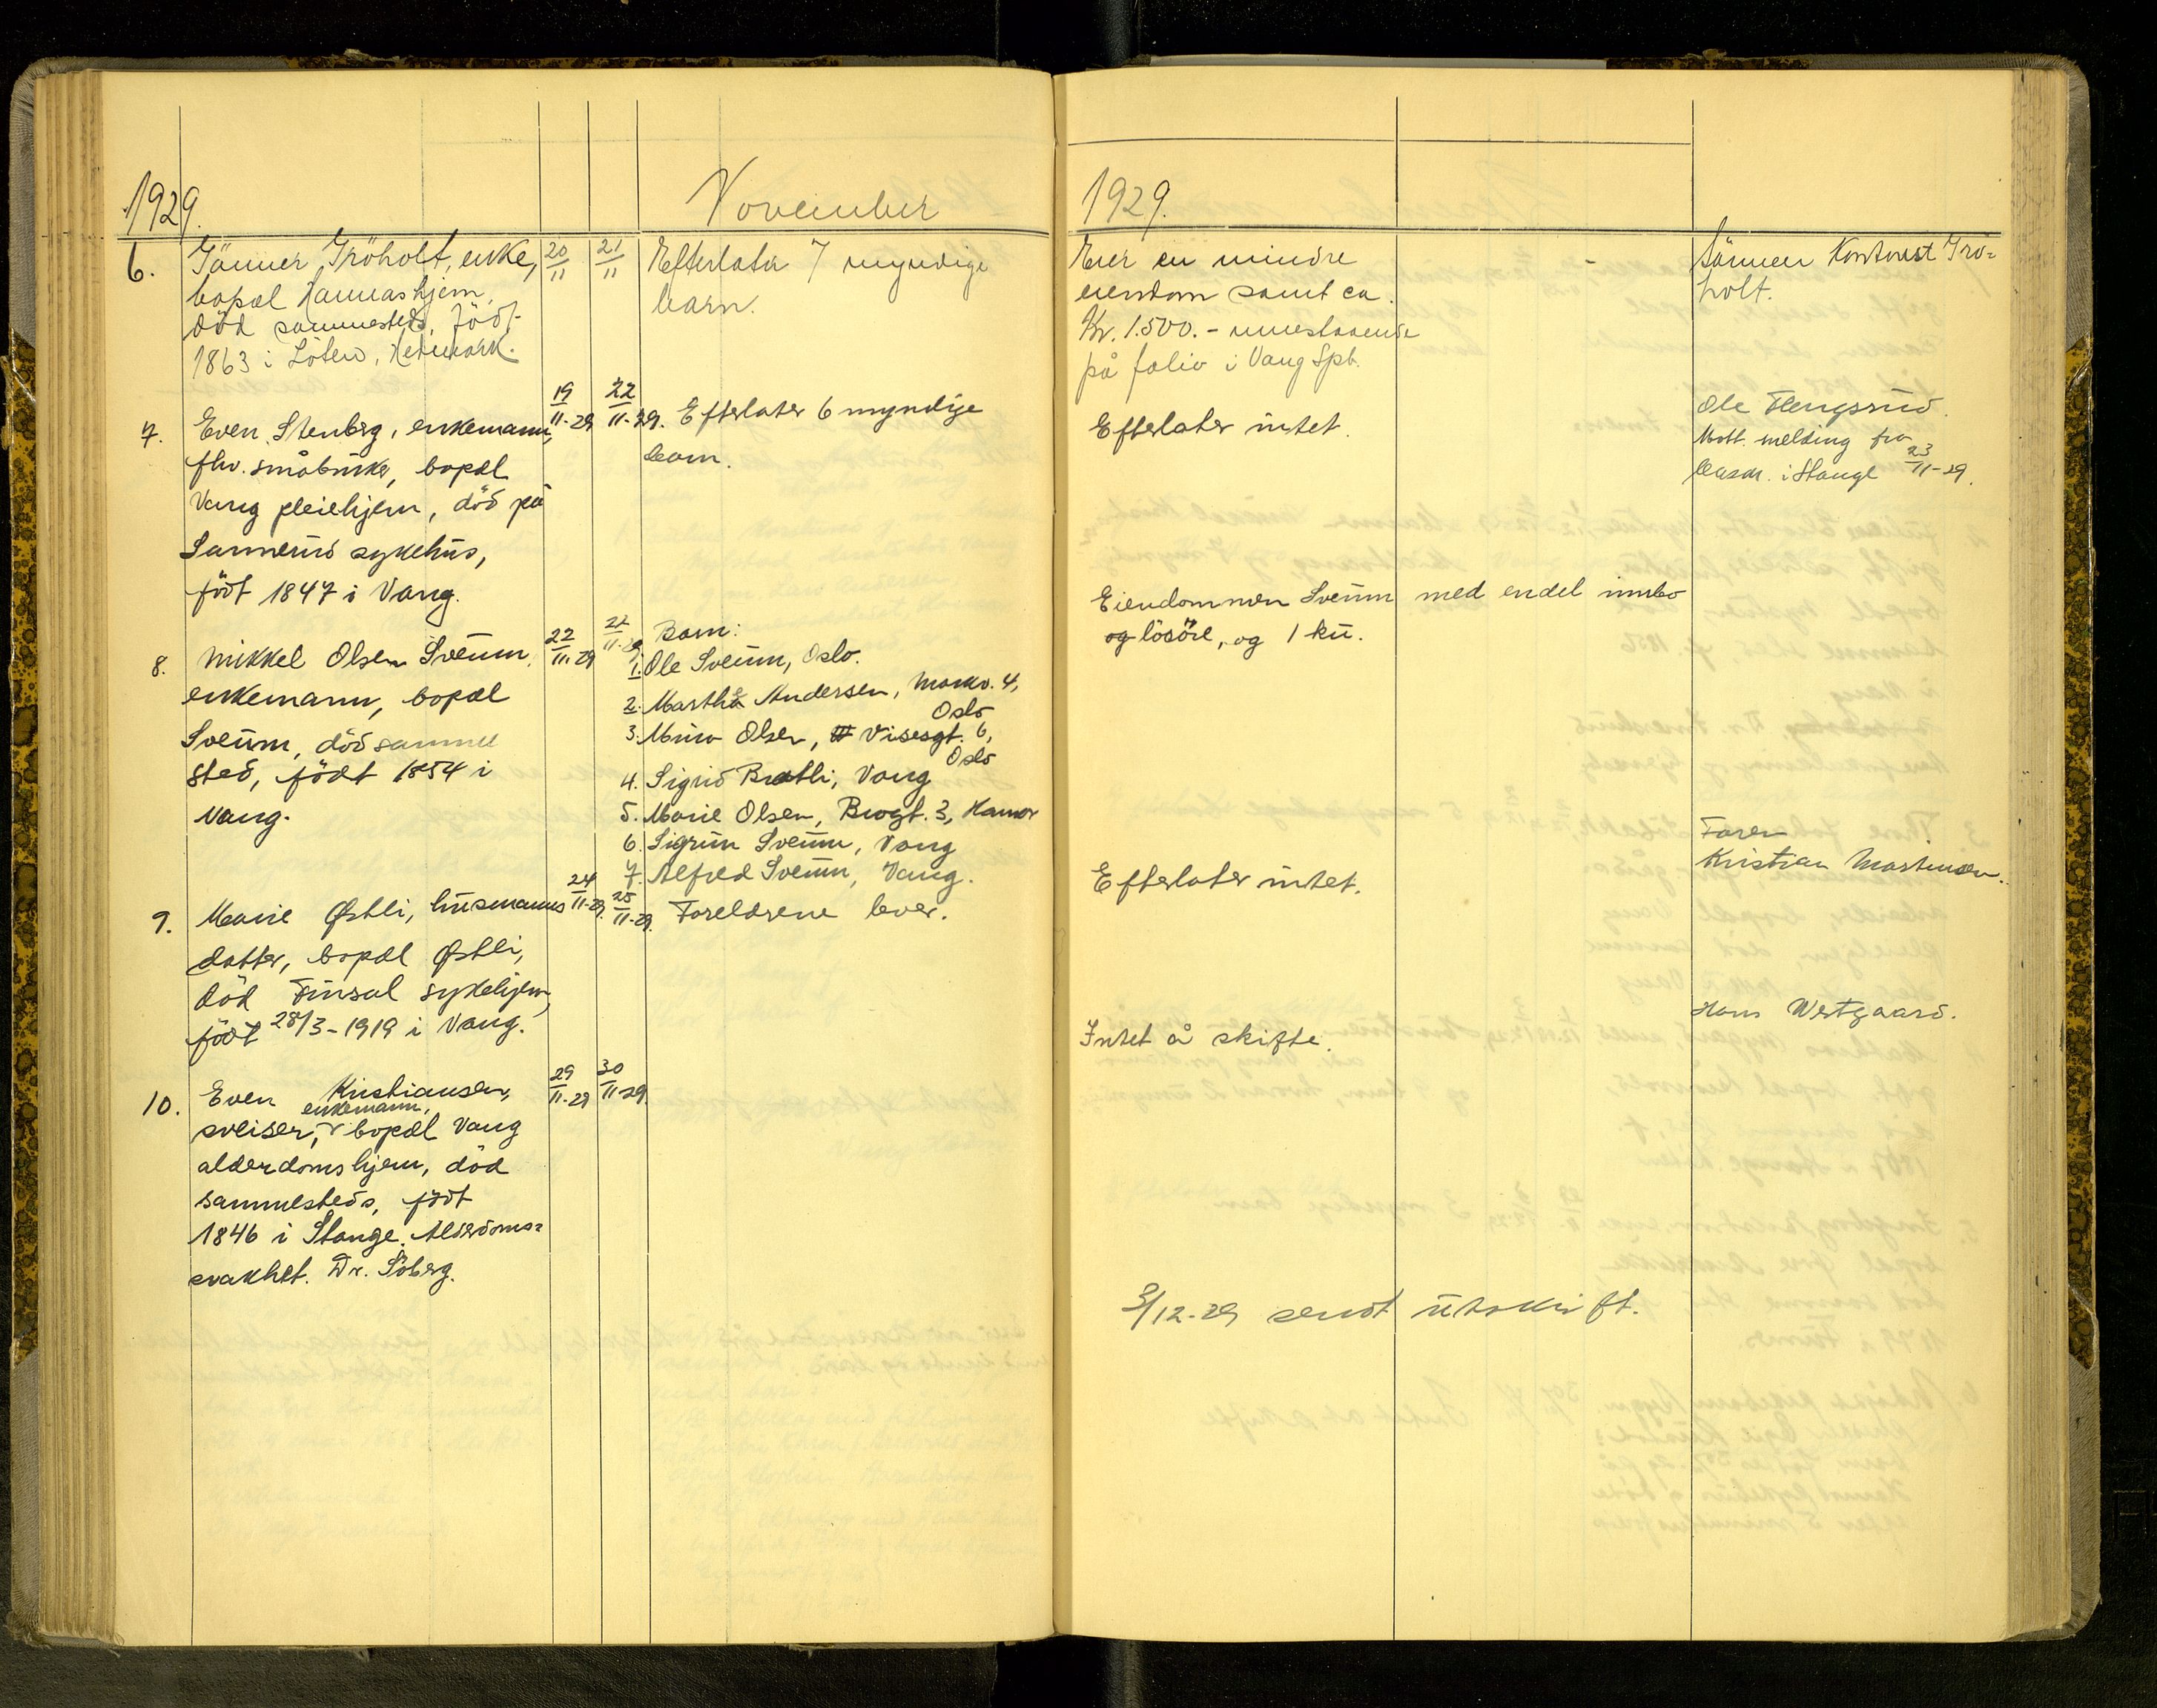 1929.
November
6.
Gröholt, enke,
20/11
21/11
Efterlater 7 myndige
barn.
bopæl Hannashjem,
död sammesteds, född
1863 i Löten, Hedmark.
7.
Even Stenberg, enkemann,
19/11-29
22/11-29.
Efterlater 6 myndige
barn.
fhv. småbruker, bopæl
Vang pleiehjem, död på
Sannerud sykehus,
födt 1847 i Vang.
8.
Mikkel Olsen Sveum,
22/11-29
22/11-29
Barn:
enkemann, bopæl
Sveum, död samme
sted, födt 1854 i
Vang.
1. Ole Sveum, Oslo.
2. Martha Andersen, Markv. 4,
Oslo
3. Olsen, Visesgt. 6,
Oslo
4. Sigrid Bratli, Vang
5. Marie Olsen, Brogt. 3, Hamar
6. Sigrun Sveum, Vang
7. Alfred Sveum, Vang.
9.
Marie Østli, husmanns
24/11-29
25/11-29.
Foreldrene lever.
datter, bopæl Østli,
död Finsal sykehjem,
födt 28/3-1919 i Vang.
10.
Even Kristiansen,
29/11-29
30/11-29.
enkemann,
sveiser, bopæl Vang
alderdomshjem, död
sammesteds, födt
1846 i Stange. Alderdoms=
svakhet. Dr. Söberg.
1929.
Eier en mindre
eiendom samt ca.
Kr. 1.500.- innestaaende
på folio i Vang Spb.
-
Sönnen Kontorist Grö=
holt.
Efterlater intet.
Ole Flengsrud.
Mott. melding fra
lensm. i Stange 23/11-29.
Eiendommen Sveum med endel innbo
og lösöre, og 1 ku.
Efterlater intet.
Faren
Kristian Martinsen.
Intet å skifte.
Hans Westgaard.
3/12-29 sendt utskrift.